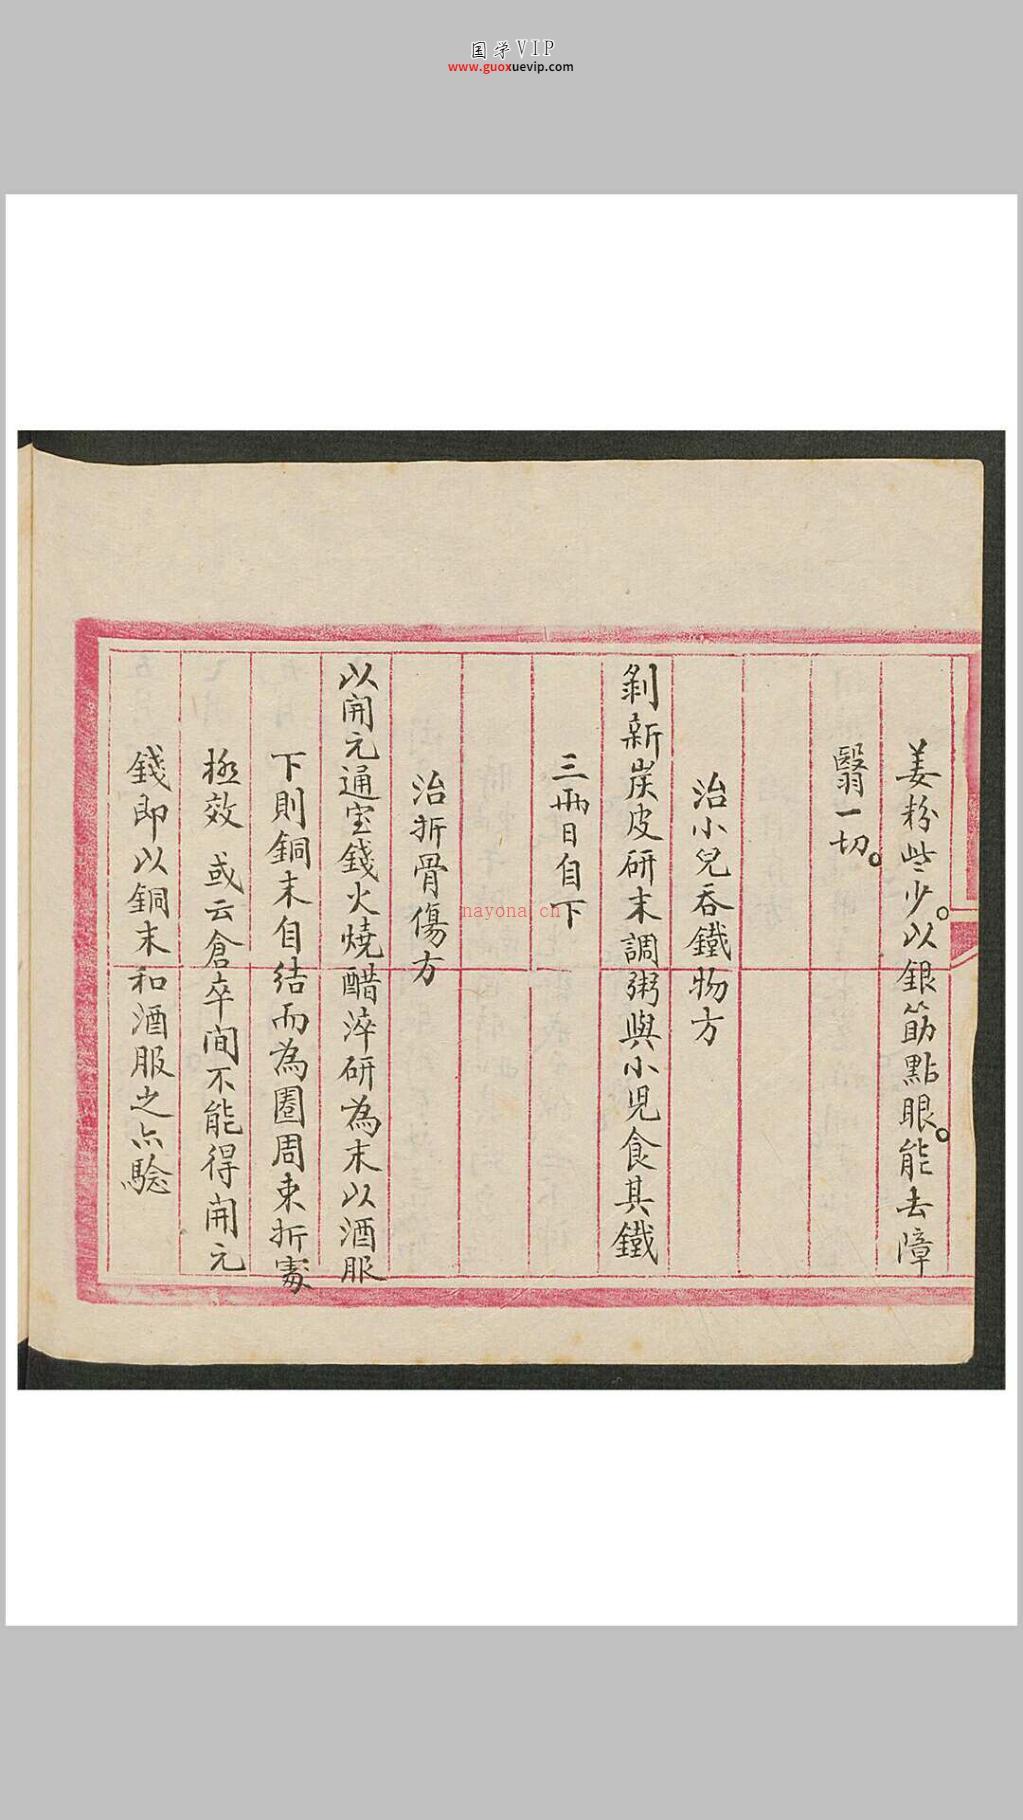 国学VIP
www.guoxuevip.com
姜粉些少。以銀筯點眼。能去障
翳一切。
治小兒吞鐵物方
剝新炭皮研末調粥與小児食其鐵
三兩日自下
治折骨傷方
以開元通宝錢火燒醋淬研為末以酒服
下則銅末自结而為圏周束折䖏
極效 或云倉卒间不能得開元
錢即以銅末和酒服之亦驗
nayona.cn